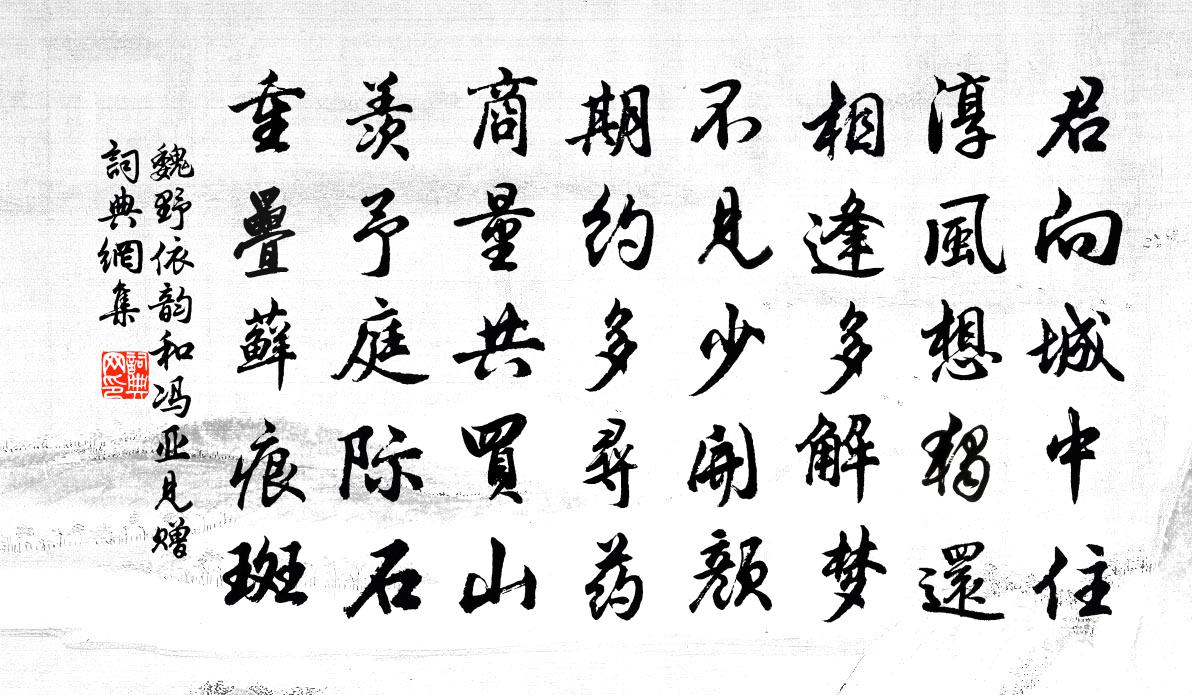 君向城中住
淳風想獨還
相逢多解梦
不見少開顔
期約多尋药
商量共買山
羨予庭际石
重疊蘚痕斑
魏野依韵和冯亚見赠
詞典網集
詞典网印